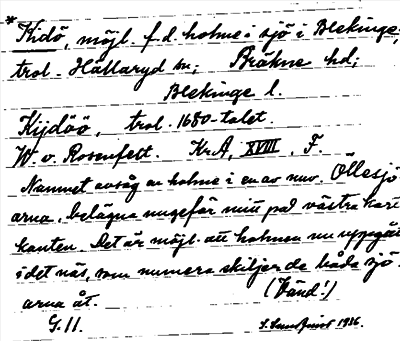 *Kidö, möjl. f.d. holme i sjö i Blekinge;
trol. Hällaryd sn; Bräkne hd;
Blekinge l.
Kijdöö, trol. 1680-talet.
W. v. Rosenfelt. Kr.A, XVIII, F.
Namnet avsåg en holme i en av nuv. Öllesjö-
arna, belägna ungefär mitt på västra kart-
kanten. Det är möjl. att holmen nu uppgått
i det näs, som numera skiljer de båda sjö-
arna åt. (Vänd!)
G. 11. 1916.